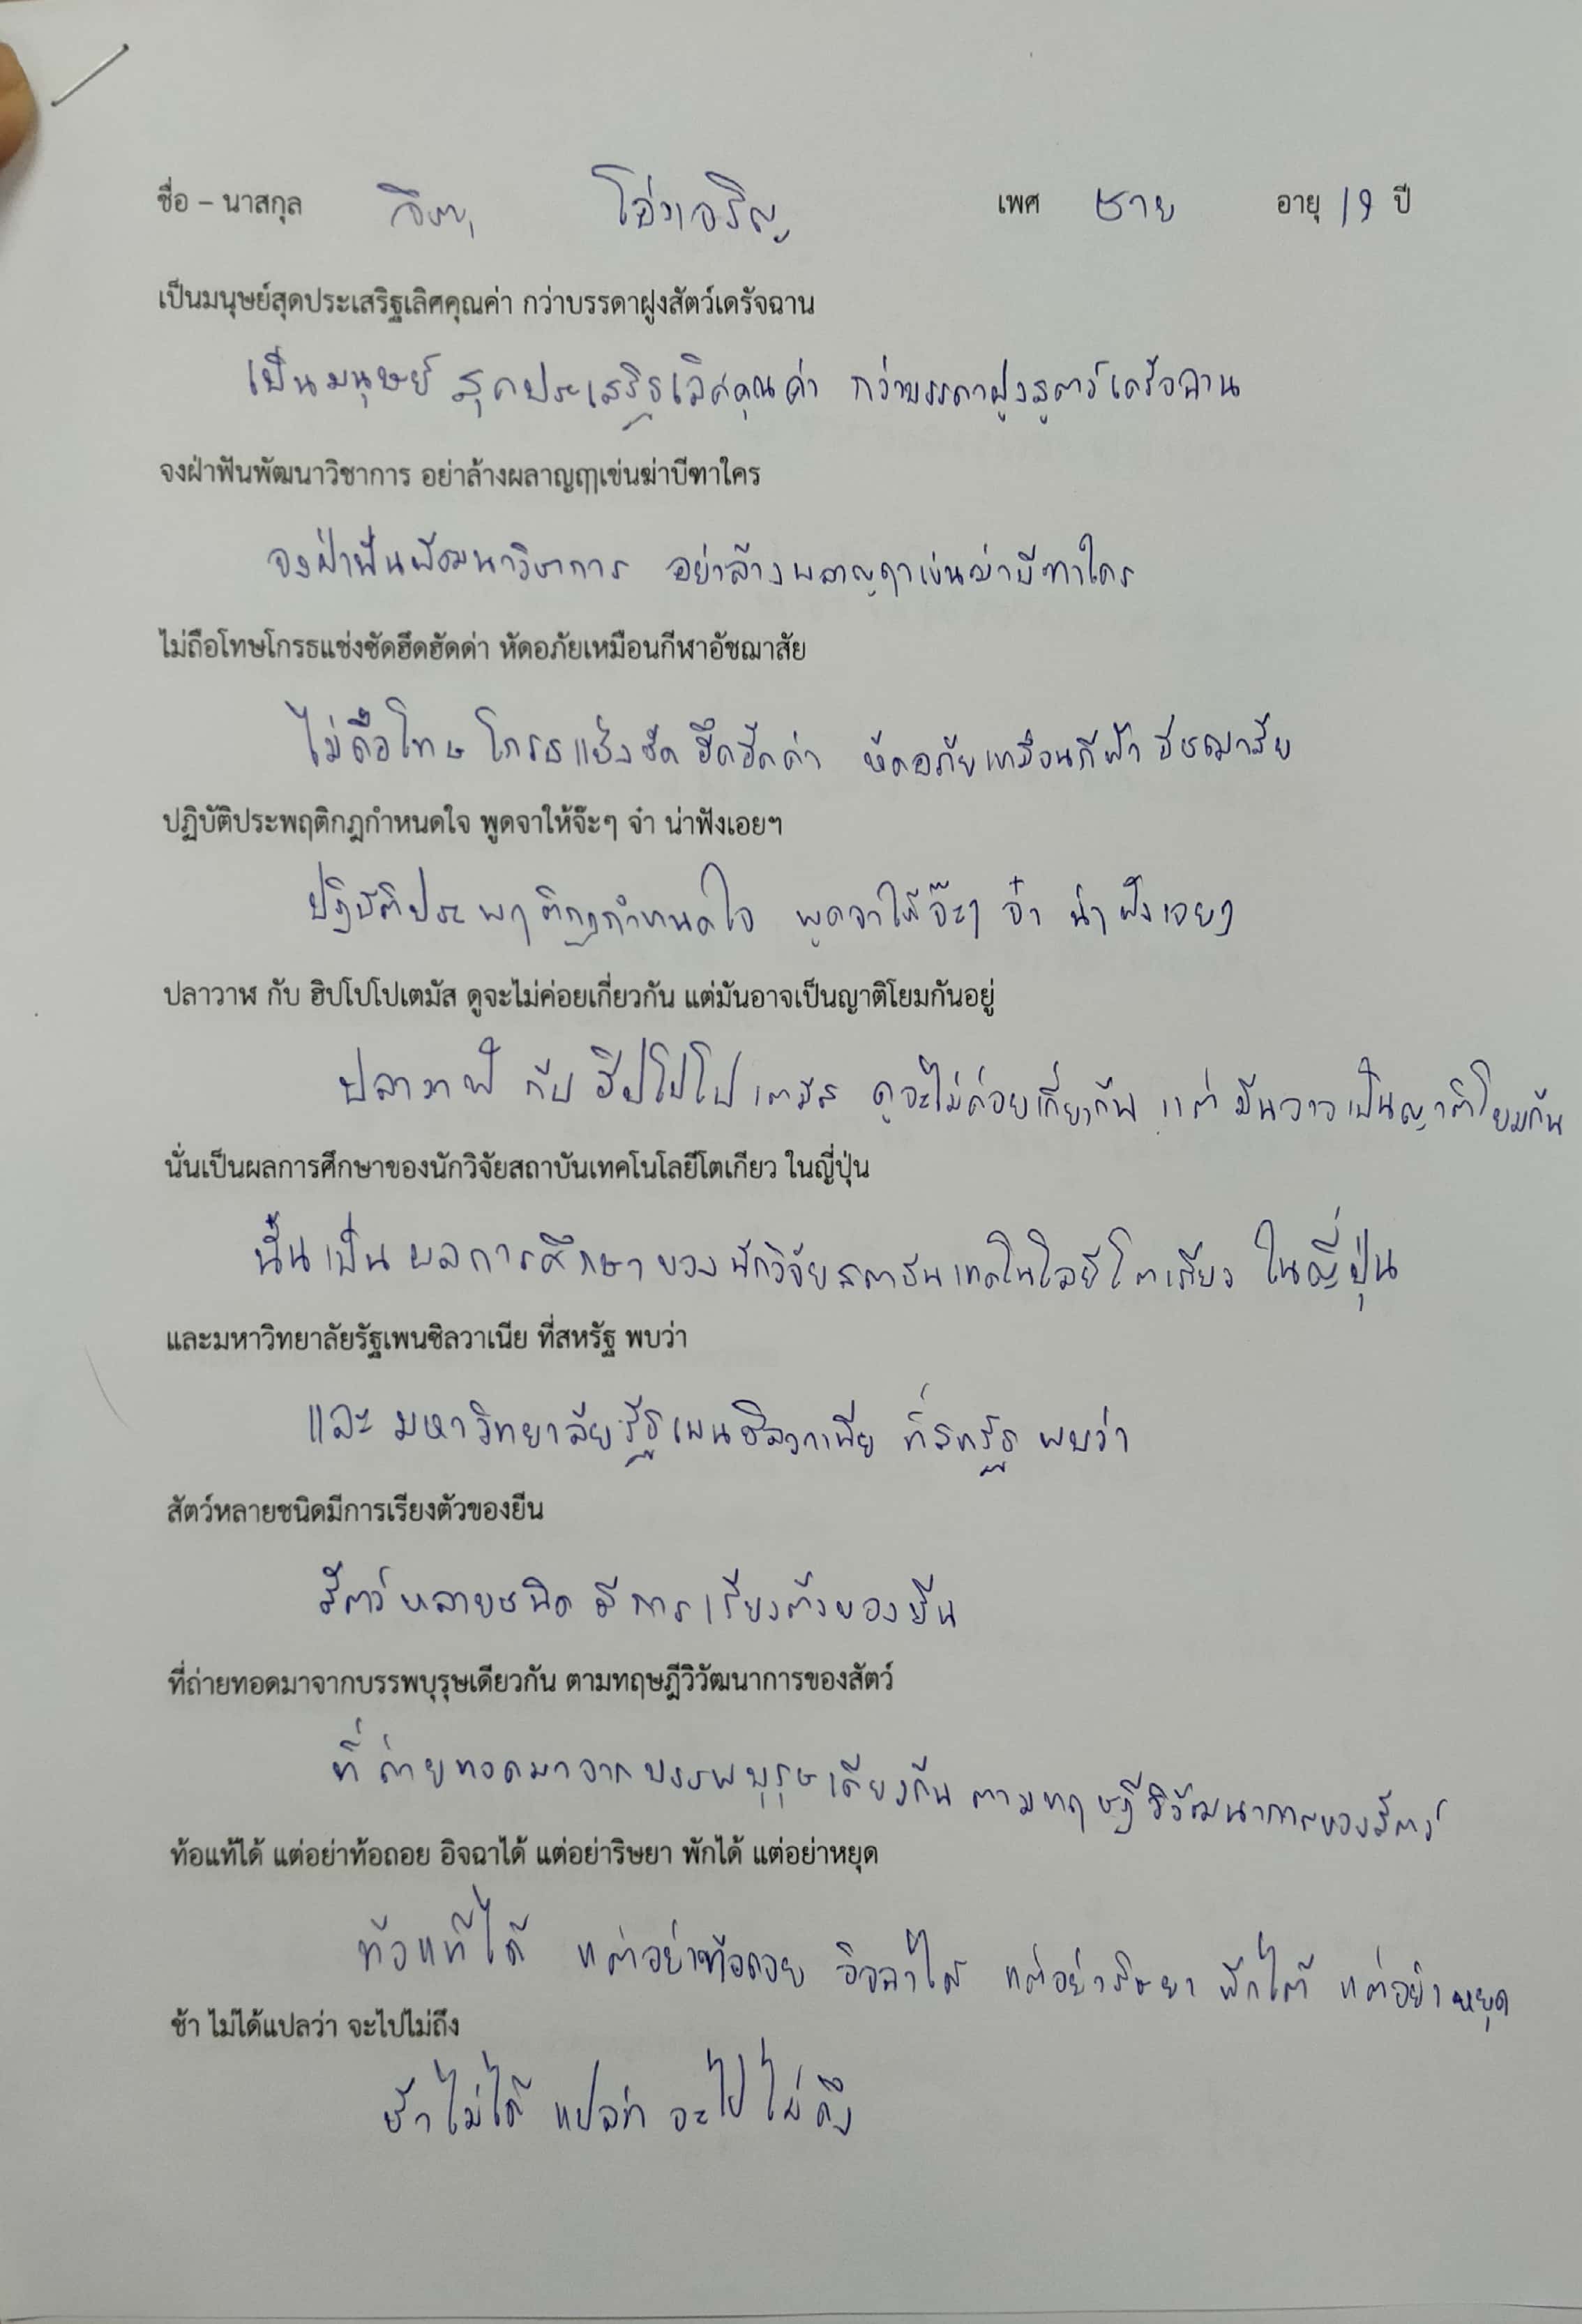 ชื่อ – นาสกุล เพศ ชาย อายุ 19 ปี
เป็นมนุษย์สุดประเสริฐเลิศคุณค่า กว่าบรรดาฝูงสัตว์เดรัจฉาน
เป็นมนุษย์ สุดประเสริฐเลิศคุณค่า กว่าบรรดาฝูงสัตว์เดรัจฉาน
จงฝ่าฟันพัฒนาวิชาการ อย่าล้างผลาญฤๅเข่นฆ่าบีฑาใคร
จงฝ่าฟันพัฒนาวิชาการ อย่าล้างผลาญฤาเข่นฆ่าบีฑาใคร
ไม่ถือโทษโกรธแช่งซัดฮึดฮัดด่า หัดอภัยเหมือนกีฬาอัชฌาสัย
ไม่ถือโทษ โกรธแช่งซัด ฮึดฮัดด่า หัดอภัยเหมือนกีฬา อัชฌาสัย
ปฏิบัติประพฤติกฎกำหนดใจ พูดจาให้จ๊ะๆ จ๋า น่าฟังเอยฯ
ปฏิบัติประพฤติกฎกำหนดใจ พูดจาให้จ๊ะๆ จ๋า น่าฟังเอยๆ
ปลาวาฬ กับ ฮิปโปโปเตมัส ดูจะไม่ค่อยเกี่ยวกัน แต่มันอาจเป็นญาติโยมกันอยู่
ปลาวาฬ กับ ฮิปโปโปเตมัส ดูจะไม่ค่อยเกี่ยวกัน แต่ มันอาจเป็นญาติโยมกัน
นั่นเป็นผลการศึกษาของนักวิจัยสถาบันเทคโนโลยีโตเกียว ในญี่ปุ่น
นั้นเป็นผลการศึกษาของนักวิจัยสถาบันเทคโนโลยีโตเกียว ในญี่ปุ่น
และมหาวิทยาลัยรัฐเพนซิลวาเนีย ที่สหรัฐ พบว่า
และมหาวิทยาลัยรัฐเพนซิลวาเนีย ที่สหรัฐ พบว่า
สัตว์หลายชนิดมีการเรียงตัวของยีน
สัตว์หลายชนิด มีการเรียงตัวของยีน
ที่ถ่ายทอดมาจากบรรพบุรุษเดียวกัน ตามทฤษฎีวิวัฒนาการของสัตว์
ที่ถ่ายทอดมาจากบรรพบุรุษเดียวกัน ตามทฤษฎีวิวัฒนาการของสัตว์
ท้อแท้ได้ แต่อย่าท้อถอย อิจฉาได้ แต่อย่าริษยา พักได้ แต่อย่าหยุด
ท้อแท้ได้ แต่อย่าท้อถอย อิจฉาได้ แต่อย่าริษยา พักได้ แต่อย่าหยุด
ช้า ไม่ได้แปลว่า จะไปไม่ถึง
ช้าไม่ได้ แปลว่า จะไปไม่ถึง